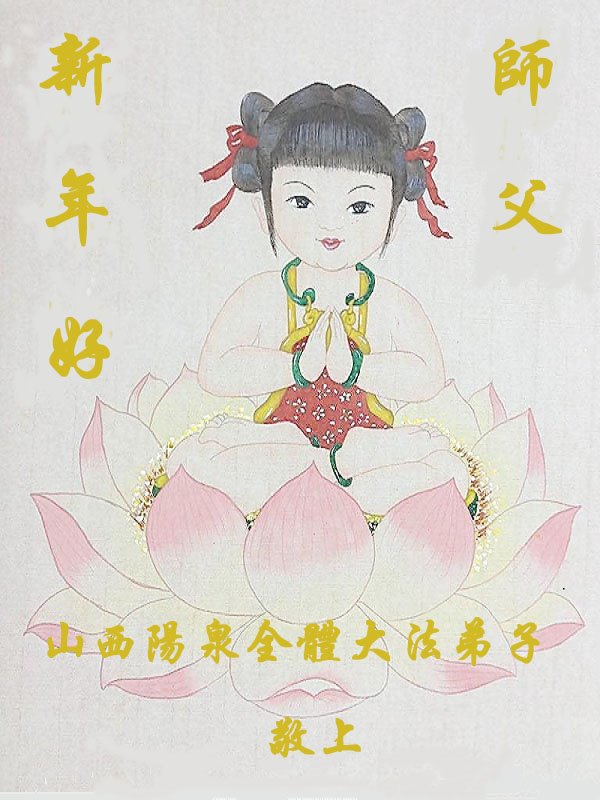 師父
新年好
山西陽泉全體大法弟子
敬上